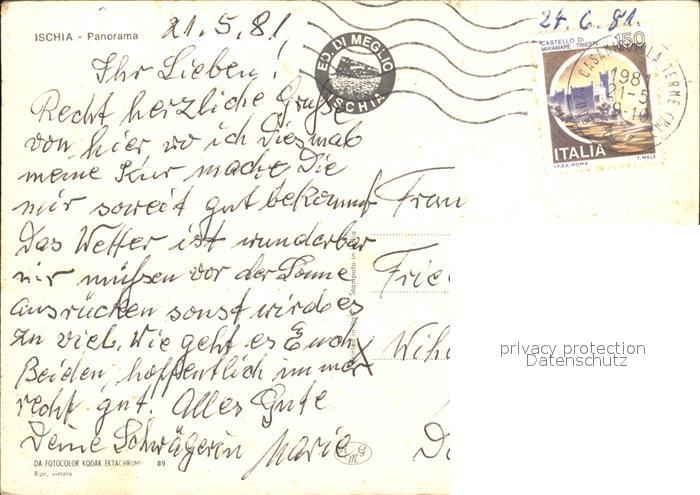 ISCHIA - Panorama
21.5.81
24.6.81.
ED. DI MEGLIO
ISCHIA
CASTELLO DI
MIRAMARE - TRIESTE
150
1981
21-5
ITALIA
I.P.Z.S.-ROMA T. MELE
Ihr Lieben.
Recht herzliche Grüße
von hier wo ich diesmal
meine Kur mache, Die
mir soweit gut bekommt
Das Wetter ist wunderbar
wir müssen vor der Sonne
ausrücken sonst wird es
zu viel. Wie geht es Euch
Beiden, hoffentlich immer
recht gut. Alles Gute
Deine Schwägerin Marie
Frau
Frie
Stampato in
privacy protection
Datenschutz
DA FOTOCOLOR KODAK EKTACHROM 89
Ripr. vietata